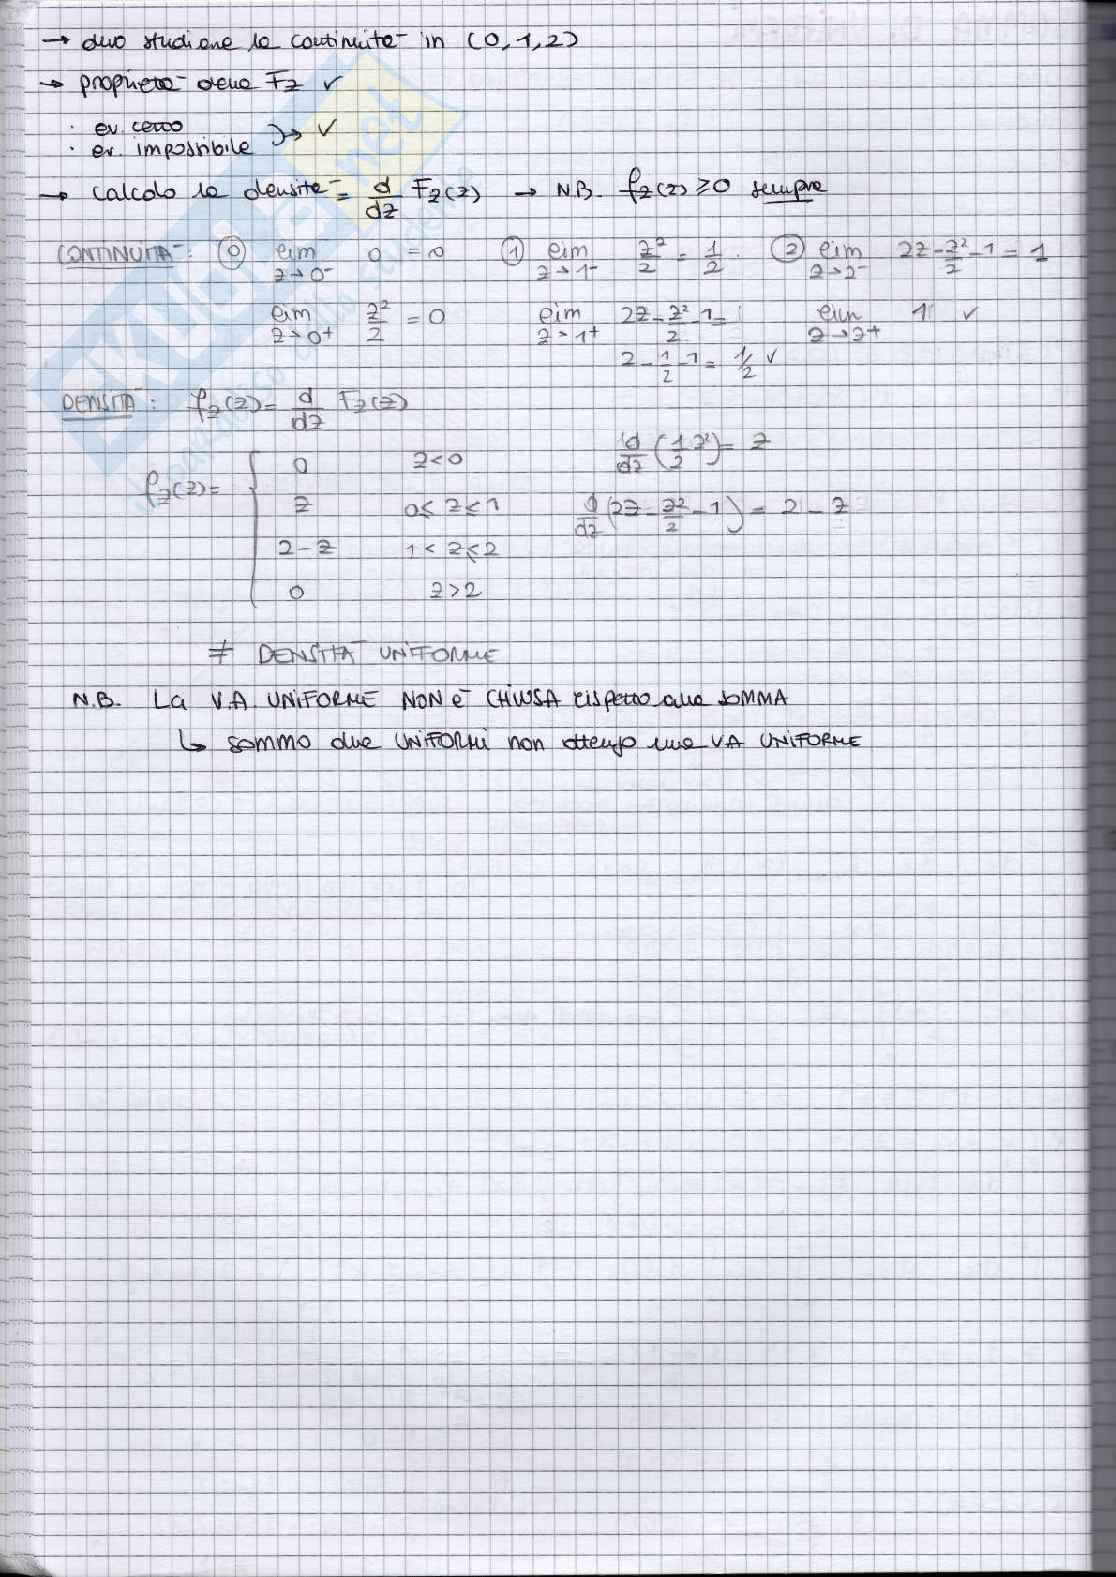 → devo studiare la continuità in (0,1,2)
→ proprietà della Fz ✓
· ev. certo
· ev. impossibile }→ ✓
→ calcolo la densità = d/dz Fz(z) → N.B. fz(z) ≥ 0 sempre
CONTINUITÀ: ⓪ lim z→0⁻ 0 = 0 ① lim z→1⁻ z²/2 = 1/2 . ② lim z→2⁻ 2z - z²/2 - 1 = 1
lim z→0⁺ z²/2 = 0 lim z→1⁺ 2z - z²/2 - 1 = lim z→2⁺ 1 ✓
2 - 1/2 - 1 = 1/2 ✓
DENSITÀ: fz(z) = d/dz Fz(z)
d/dz (1/2 z²) = z
fz(z) = { 0 z<0
z 0≤z≤1 d/dz (2z - z²/2 - 1) = 2 - z
2-z 1<z≤2
0 z>2
≠ DENSITÀ UNIFORME
N.B. La V.A. UNIFORME NON è CHIUSA rispetto alla SOMMA
↳ sommo due UNIFORMI non ottengo una VA UNIFORME